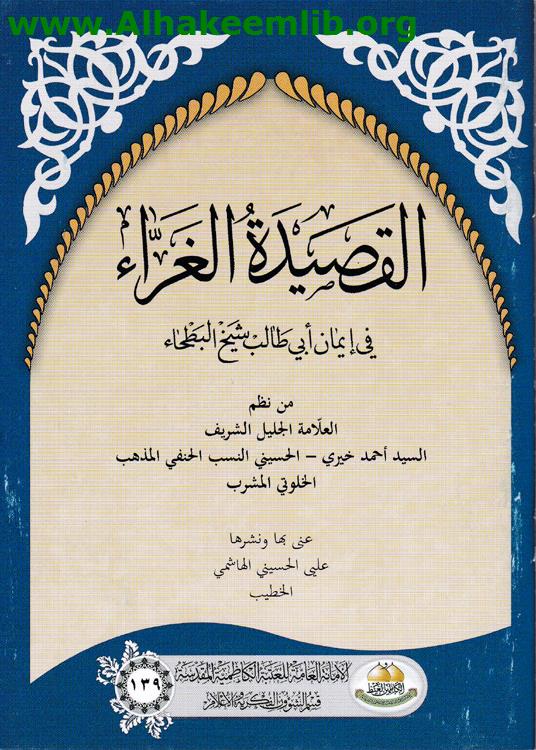 www.Alhakeemlib.org
القصيدة الغرّاء
في إيمان أبي طالب شيخ البطحاء
من نظم
العلّامة الجليل الشريف
السيد أحمد خيري – الحسيني النسب الحنفي المذهب
الخلوتي المشرب
عنى بها ونشرها
علي الحسيني الهاشمي
الخطيب
الأمانة العامة للعتبة الكاظمية المقدسة
قسم الشؤون الفكرية والإعلام
١٣٩